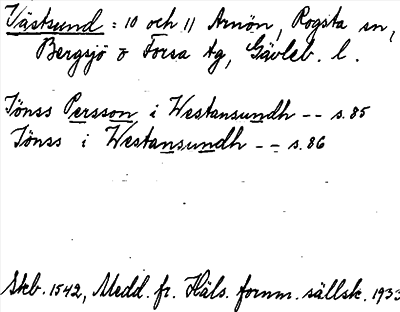 Västsund : 10 och 11 Arnön, Rogsta sn,
Bergsjö o Forsa tg, Gävleb. l.
Jönss Persson i Westansundh -- s. 85
Jönss i Westansundh -- s. 86
Skb. 1542, Medd. fr. Häls. fornm. sällsk. 1933